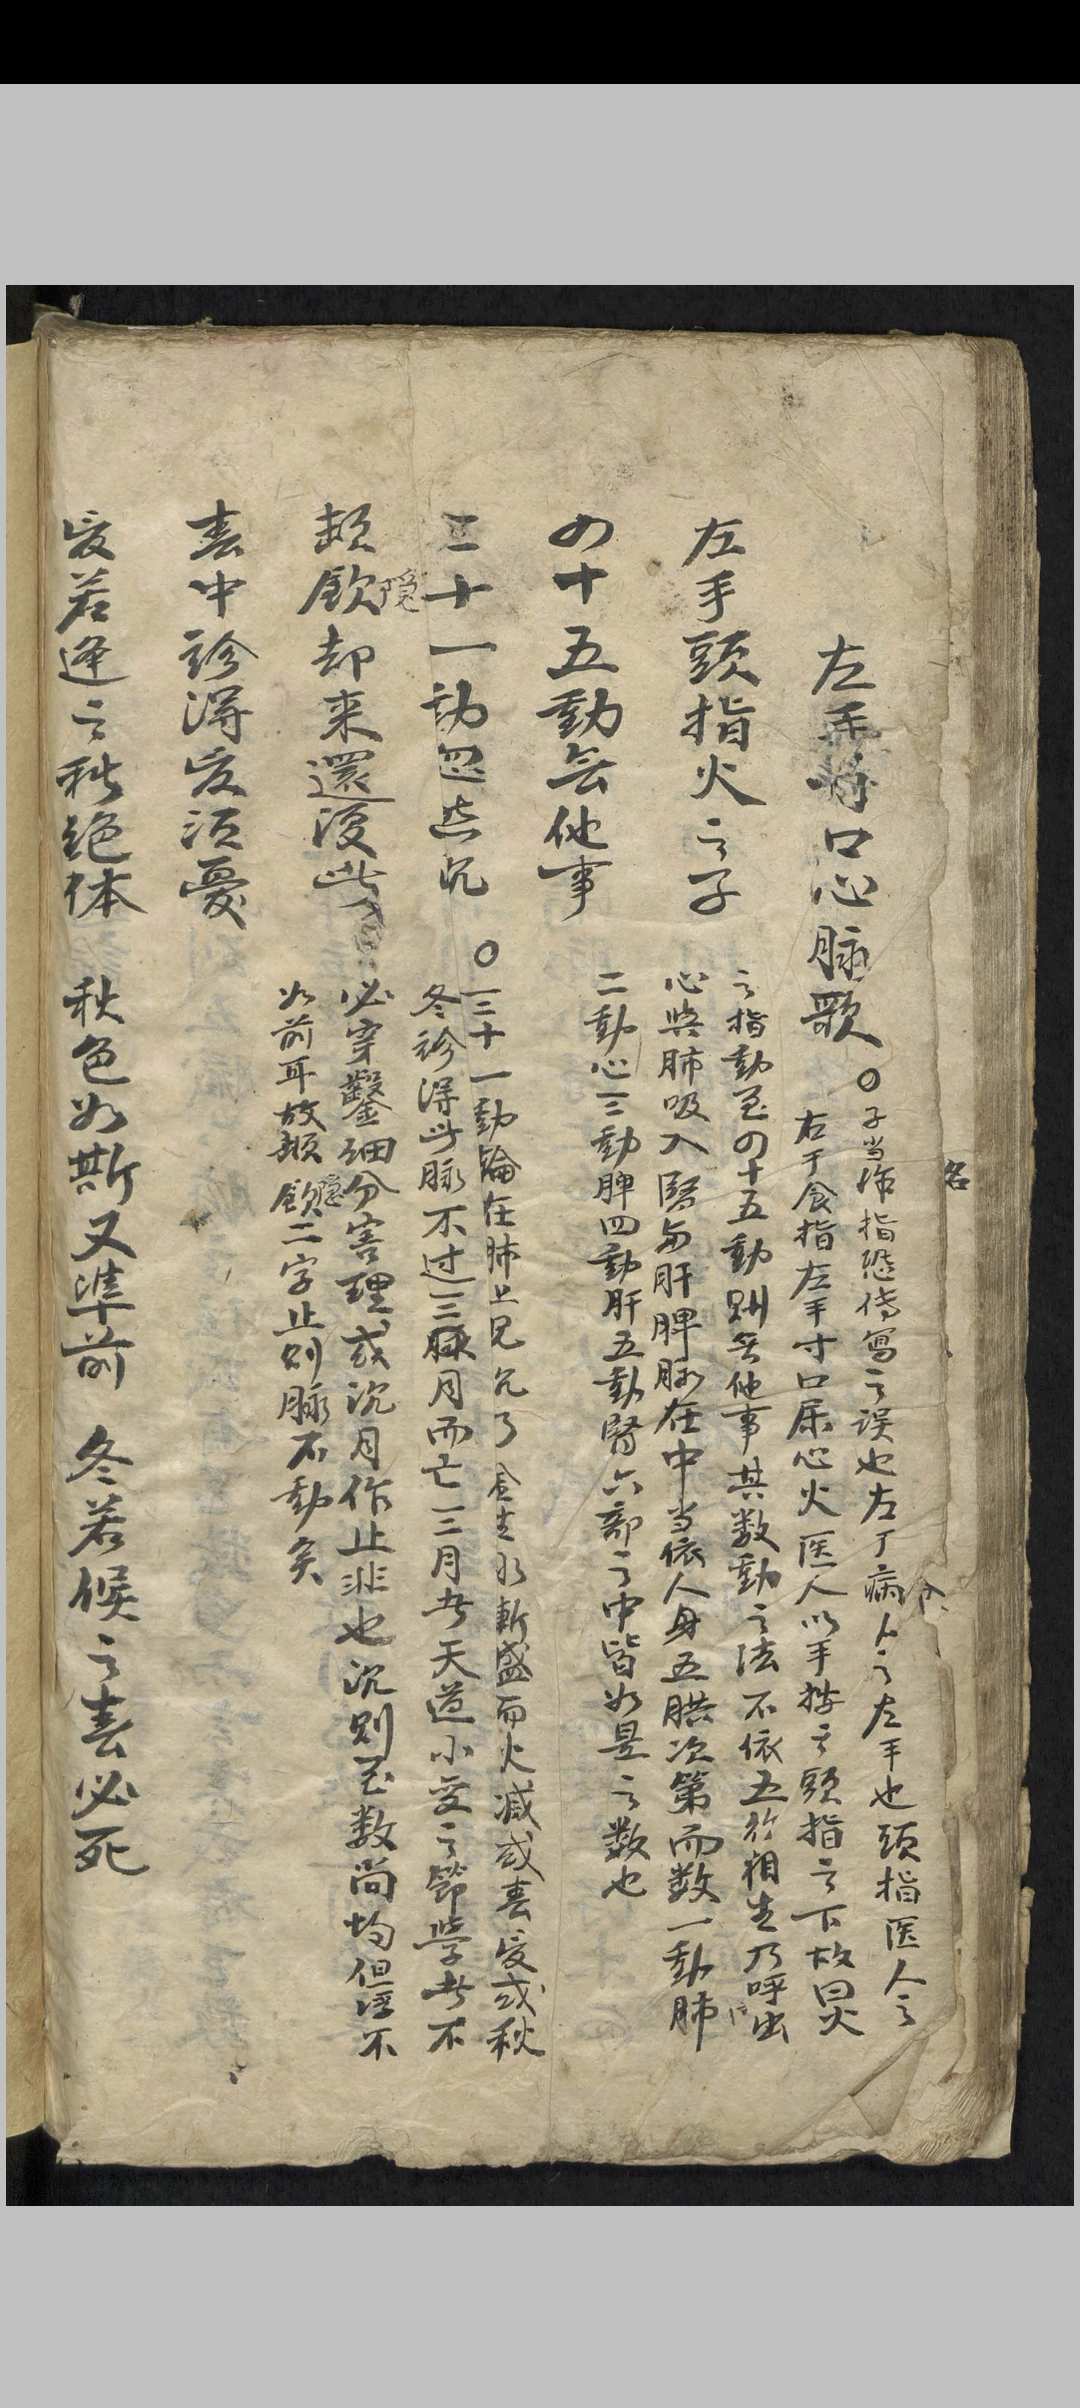 左手寸口心脉歌
○子当作指盖傳寫之误也左了病人之左手也頭指医人之
右手食指左手寸口属心火医人以手按之頭指之下故曰火
左手頭指火之子
之指動至四十五動則無他事其数動之法不依五行相生乃呼出
心與肺吸入腎与肝脾脉在中当依人身五臓次第而数一動肺
二動心三動脾四動肝五動腎六部之中皆如是之数也
四十五動無他事
三十一動忽然沉
○三十一動論在肺上見沉了金生水斬盛而火减或春夏或秋
冬診得此脉不过三月而亡三月者天道小变之節學者不
頻飲隠却来還復此
必穿鑿細分害理或沉月作止非也沉則至数尚均但浮不
如前耳故頻飲隠二字止則脉不動矣
春中診得夏須憂
夏若逢之秋絶体 秋色如斯又準前 冬若候之春必死
名